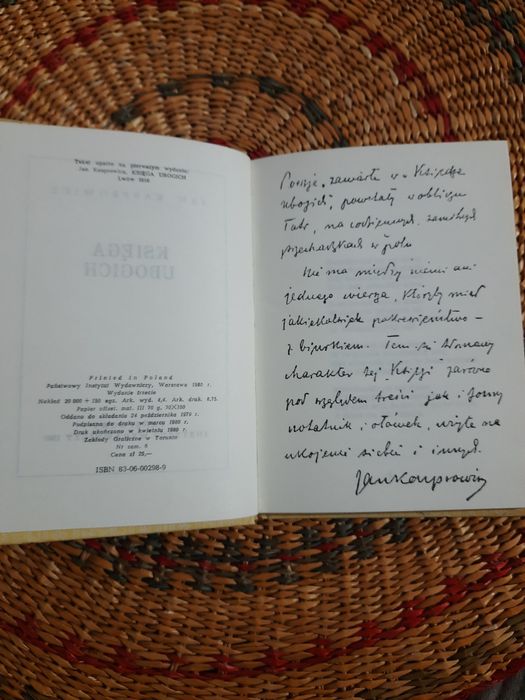 Tekst oparto na pierwszym wydaniu:
Jan Kasprowicz, KSIĘGA UBOGICH
Lwów 1916
Printed in Poland
Państwowy Instytut Wydawniczy, Warszawa 1980 r.
Wydanie trzecie
Nakład 20 000 + 150 egz. Ark. wyd. 4,4. Ark. druk. 8,75.
Papier offset. mat. III 70 g, 70X100
Oddano do składania 24 października 1979 r.
Podpisano do druku w marcu 1980 r.
Druk ukończono w kwietniu 1980 r.
Zakłady Graficzne w Toruniu
Nr zam.
Cena zł 25,—
ISBN 83-06-00298-9
Poezje, zawarte w „Księdze
ubogich", powstały w obliczu
Tatr, na codziennych, samotnych
przechadzkach w polu
Nie ma między niemi ani
jednego wiersza, któryby miał
jakiekolwiek pokrewieństwo
z biurkiem. Tem się tłomaczy
charakter tej „Księgi" zarówno
pod względem treści jak i formy
notatnik i ołówek, użyte na
ukojenie siebie i innych.
Jan Kasprowicz